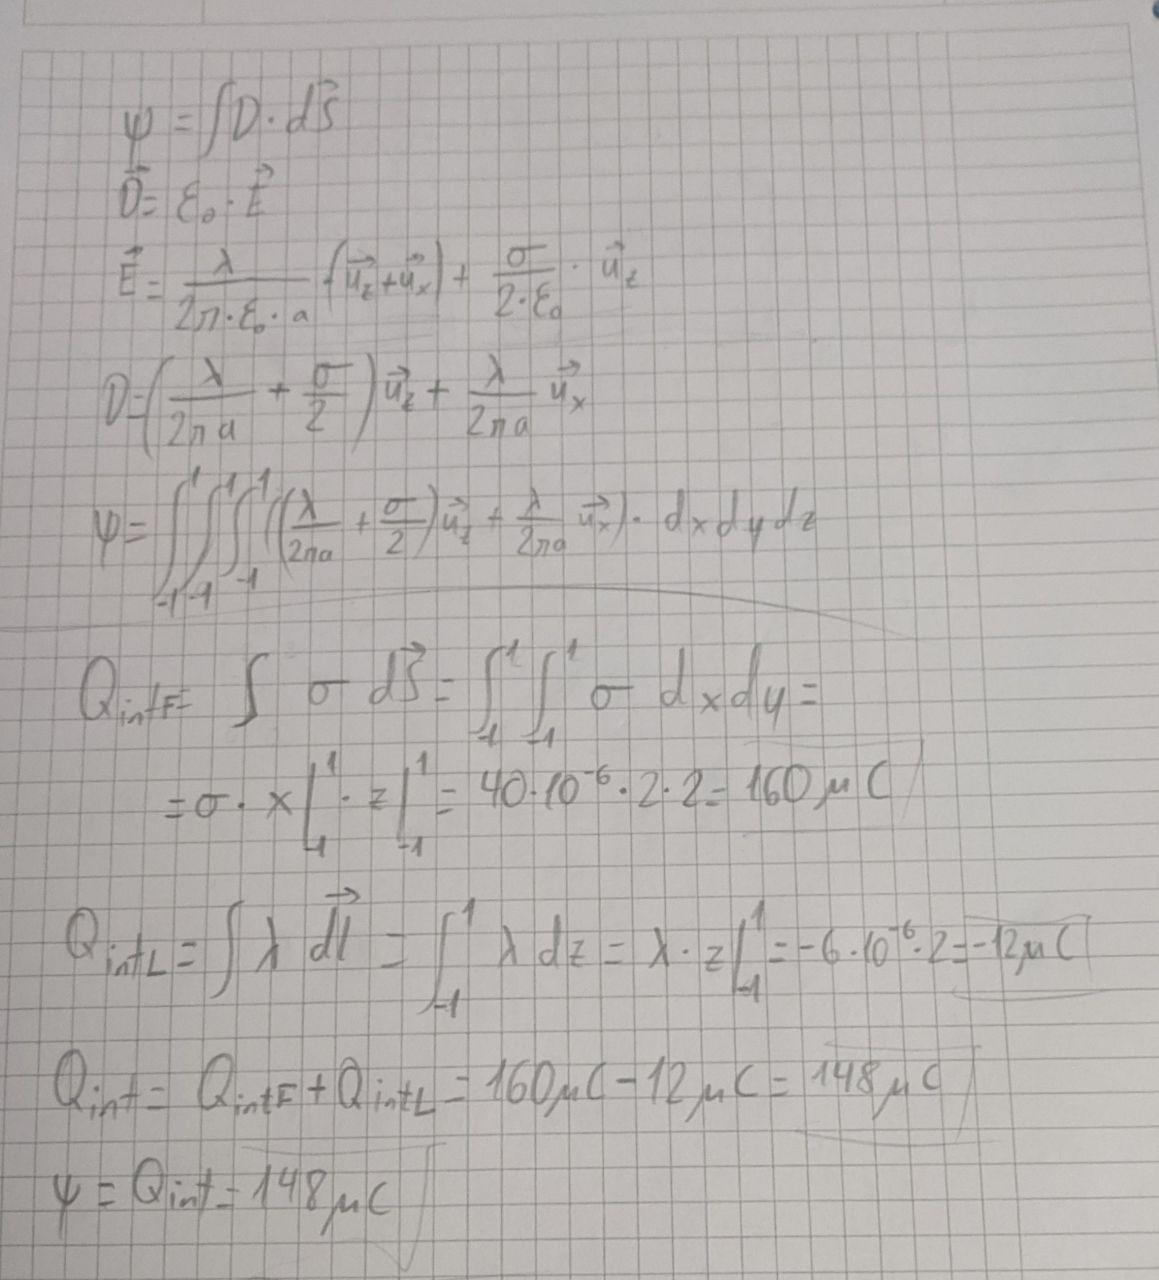 ψ = ∫D · dS⃗
D⃗ = ε₀ · E⃗
E⃗ = λ/(2π·ε₀·a) · (u⃗z + u⃗x) + σ/(2·ε₀) · u⃗z
D = (λ/(2πa) + σ/2) u⃗z + λ/(2πa) u⃗x
ψ = ∫₋₁¹ ∫₋₁¹ ∫₋₁¹ ((λ/(2πa) + σ/2) u⃗z + λ/(2πa) u⃗x) · dxdydz
QintF = ∫ σ dS⃗ = ∫₋₁¹ ∫₋₁¹ σ dxdy =
= σ · x|₋₁¹ · z|₋₁¹ = 40·10⁻⁶·2·2 = 160μC
QintL = ∫ λ dl⃗ = ∫₋₁¹ λ dz = λ · z|₋₁¹ = -6·10⁻⁶·2 = -12μC
Qint = QintF + QintL = 160μC - 12μC = 148μC
ψ = Qint = 148μC